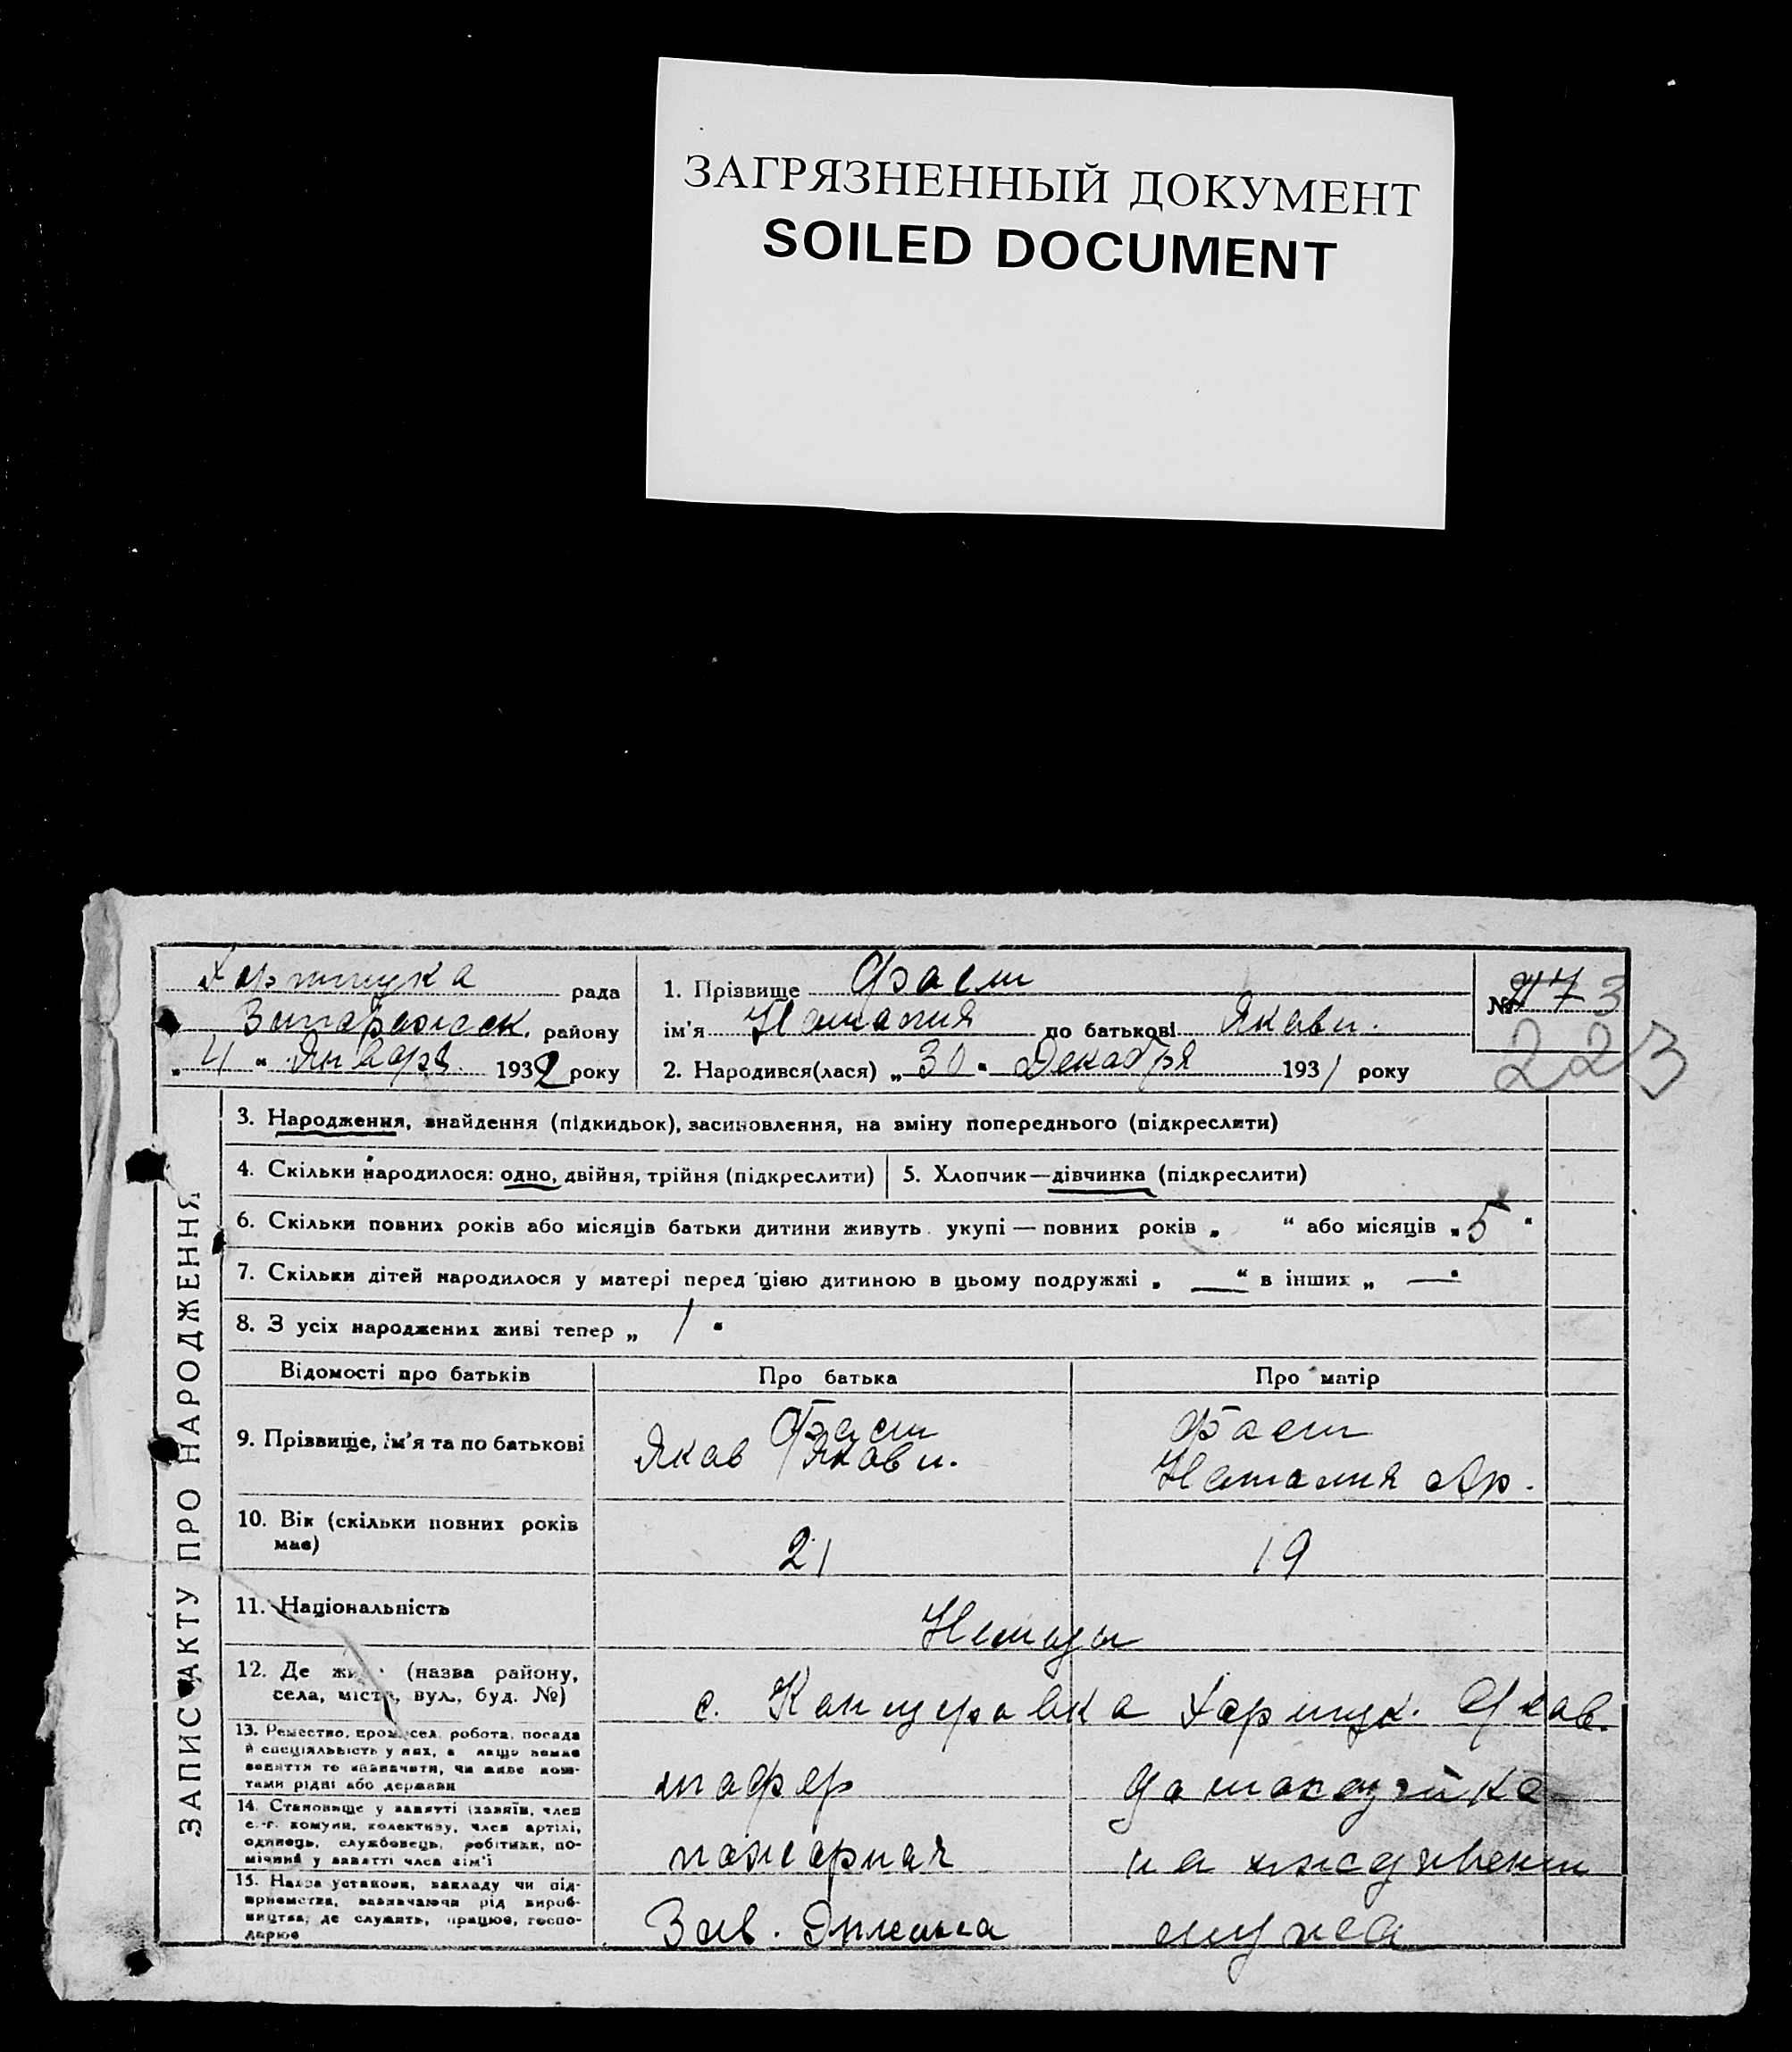 ЗАГРЯЗНЕННЫЙ ДОКУМЕНТ
SOILED DOCUMENT
рада
району
„ 4 “ Января 1932 року
1. Прізвище Фаст
ім'я Наталия по батькові Якавл.
2. Народився(лася) „ 30 " Декабря 1931 року
№ 3
223
ЗАПИС АКТУ ПРО НАРОДЖЕННЯ
3. Народження, знайдення (підкидьок), засиновлення, на зміну попереднього (підкреслити)
4. Скільки народилося: одно, двійня, трійня (підкреслити)
5. Хлопчик—дівчинка (підкреслити)
6. Скільки повних років або місяців батьки дитини живуть укупі — повних років „ “ або місяців „ 5 "
7. Скільки дітей народилося у матері перед цією дитиною в цьому подружжі „ — “ в інших „ — "
8. З усіх народжених живі тепер „ 1 "
Відомості про батьків
Про батька
Про матір
9. Прізвище, ім'я та по батькові
Фаст
Якав Якавл.
Фаст
Наталия Яр.
10. Вік (скільки повних років
має)
21
19
11. Національність
Немцы
12. Де жи (назва району,
села, міста, вул., буд. №)
с. Канцеровка
13. Ремество, промисел, робота, посада
й спеціяльність у них, а якщо немає
заняття то зазначити, чи живе кош-
тами рідні або держави
шофер
домохозяйка
14. Становище у занятті (хазяїн, член
с.-г. комуни, колективу, член артілі,
одинець, службовець, робітник, по-
мічний у занятті член сім'ї
пожарная
на иждивении
15. Назва установи, закладу чи під-
приємства, зазначаючи рід вироб-
ництва, де служить, працює, госпо-
дарює
Зав.
мужа